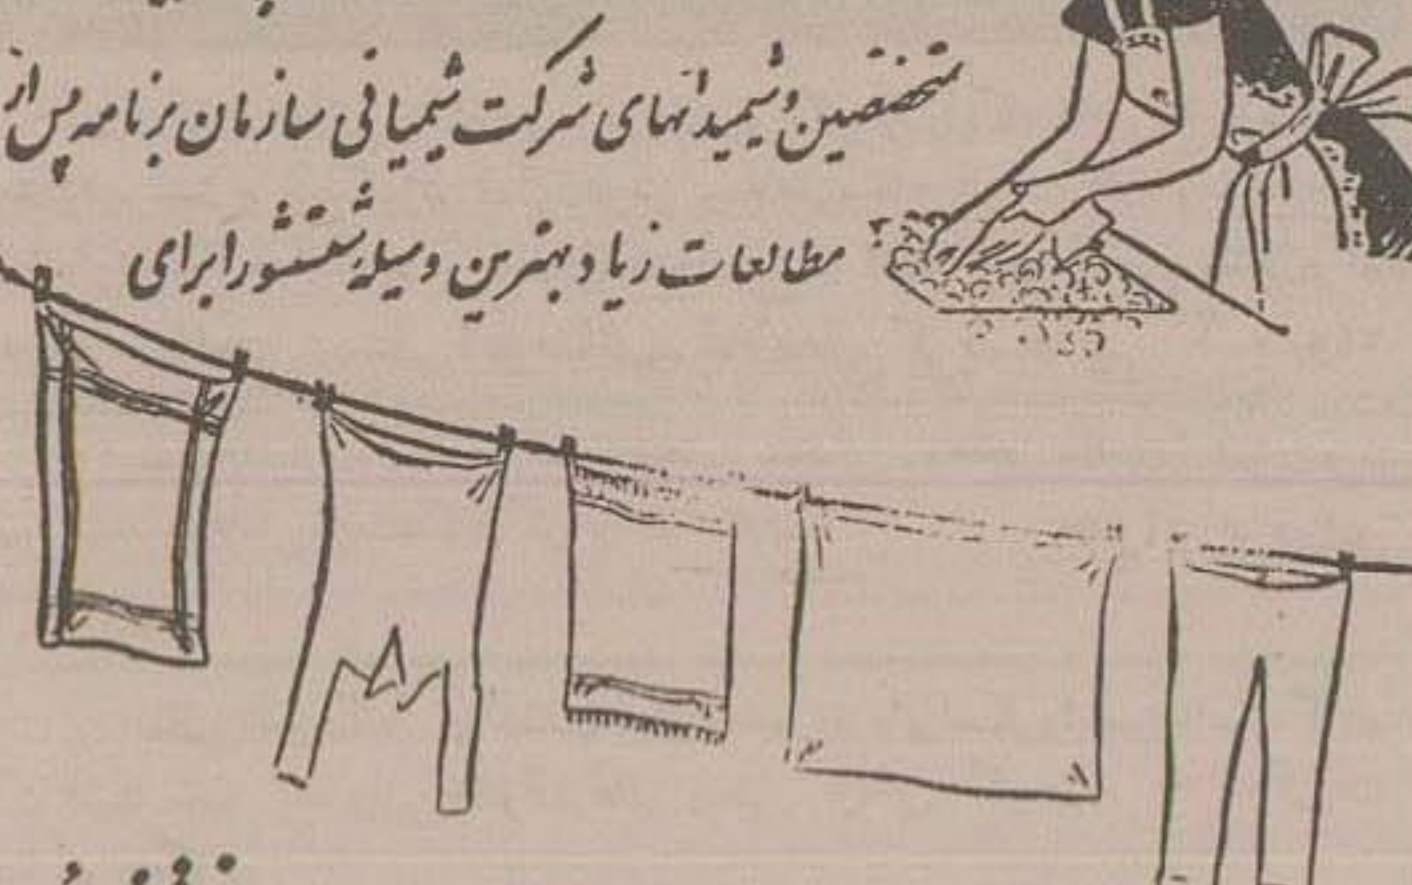 متخصصین و شیمیدانهای شرکت شیمیائی سازمان برنامه پس از
مطالعات زیاد بهترین وسیله شستشو را برای